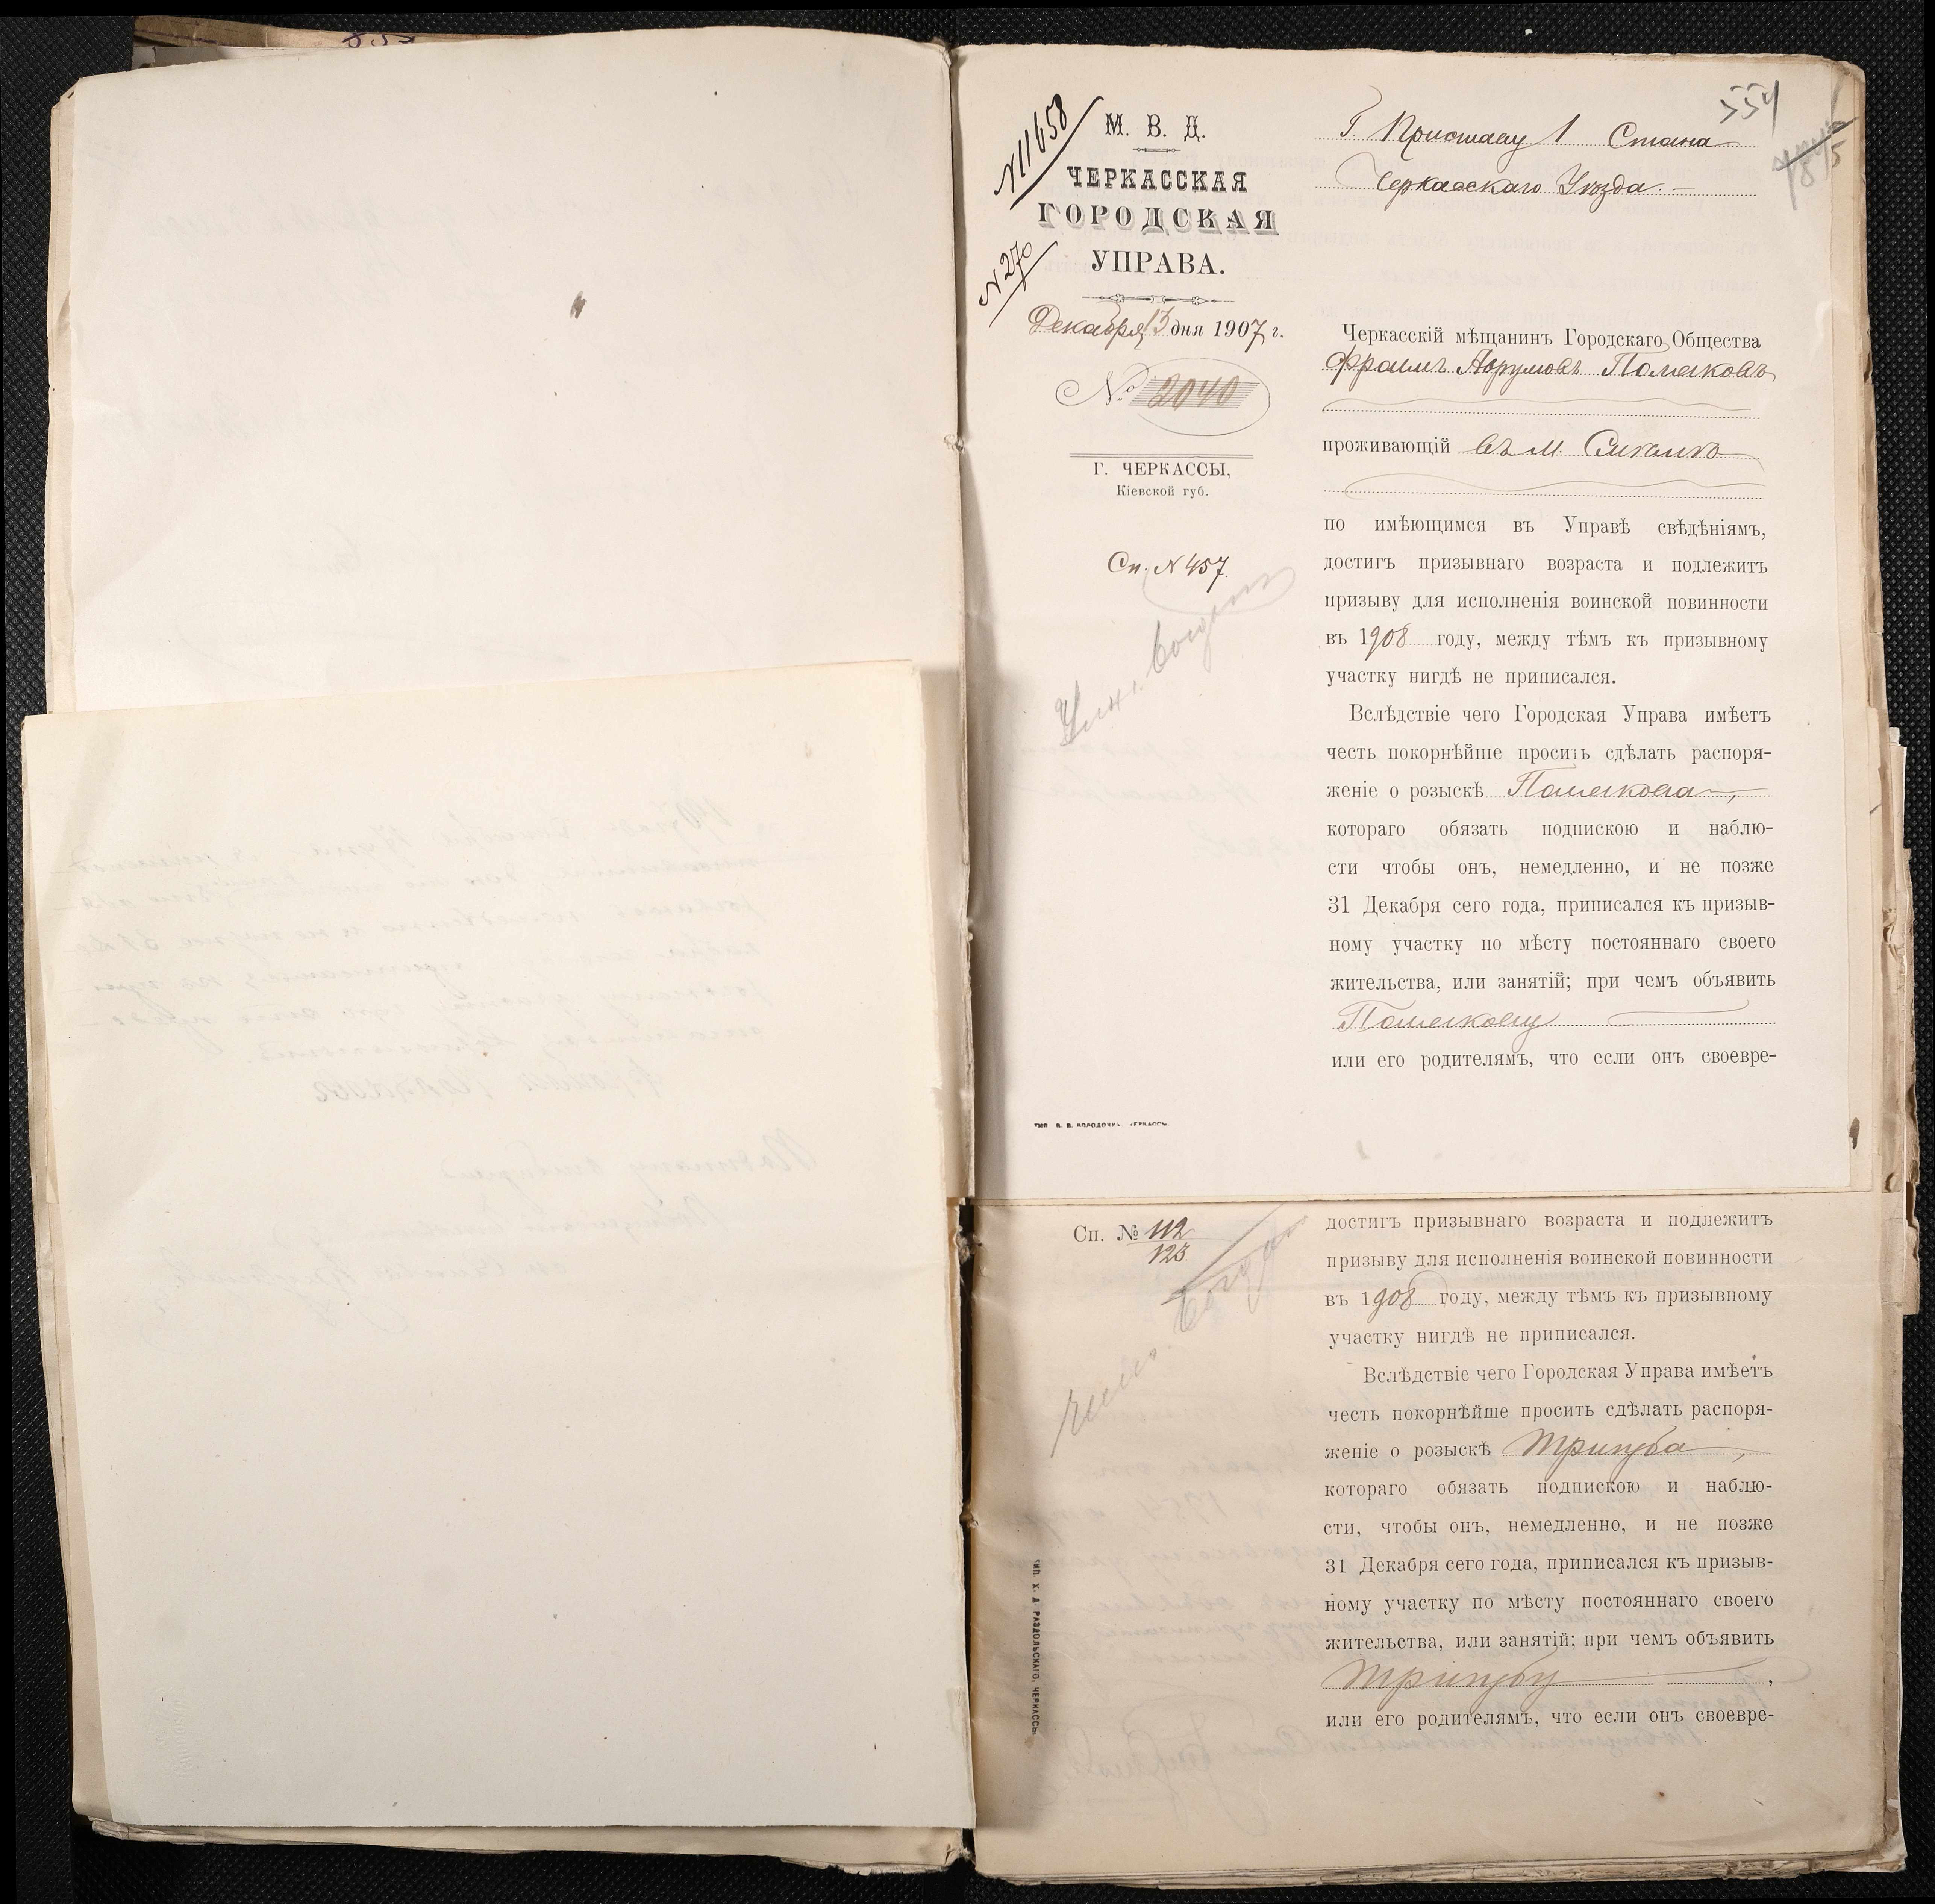 554
N 11658
М. В. Д.
ЧЕРКАССКАЯ
ГОРОДСКАЯ
УПРАВА.
N 270
Декабря 13 дня 1907 г.
№ 2040
Г. ЧЕРКАССЫ,
Кіевской губ.
Сп. N 457
Г. Приставу 1 Стана
Черкасскаго Уѣзда
Черкасскій мѣщанинъ Городскаго Общества
Фроимъ Аврумовъ
проживающій въ м.
по имѣющимся въ Управѣ свѣдѣніямъ,
достигъ призывнаго возраста и подлежитъ
призыву для исполненія воинской повинности
въ 1908 году, между тѣмъ къ призывному
участку нигдѣ не приписался.
Вслѣдствіе чего Городская Управа имѣетъ
честь покорнѣйше просить сдѣлать распоря-
женіе о розыскѣ
котораго обязать подпискою и наблю-
сти чтобы онъ, немедленно, и не позже
31 Декабря сего года, приписался къ призыв-
ному участку по мѣсту постояннаго своего
жительства, или занятій; при чемъ объявить
или его родителямъ, что если онъ своевре-
Сп. № 112
123
достигъ призывнаго возраста и подлежитъ
призыву для исполненія воинской повинности
въ 1908 году, между тѣмъ къ призывному
участку нигдѣ не приписался.
Вслѣдствіе чего Городская Управа имѣетъ
честь покорнѣйше просить сдѣлать распоря-
женіе о розыскѣ Тригуба,
котораго обязать подпискою и наблю-
сти, чтобы онъ, немедленно, и не позже
31 Декабря сего года, приписался къ призыв-
ному участку по мѣсту постояннаго своего
жительства, или занятій; при чемъ объявить
Тригубу,
или его родителямъ, что если онъ своевре-
ТИП. Х. Д. РАЗДОЛЬСКАГО, ЧЕРКАССЫ.